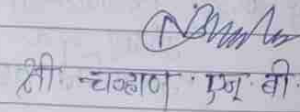 श्री. चव्हाण एम. बी